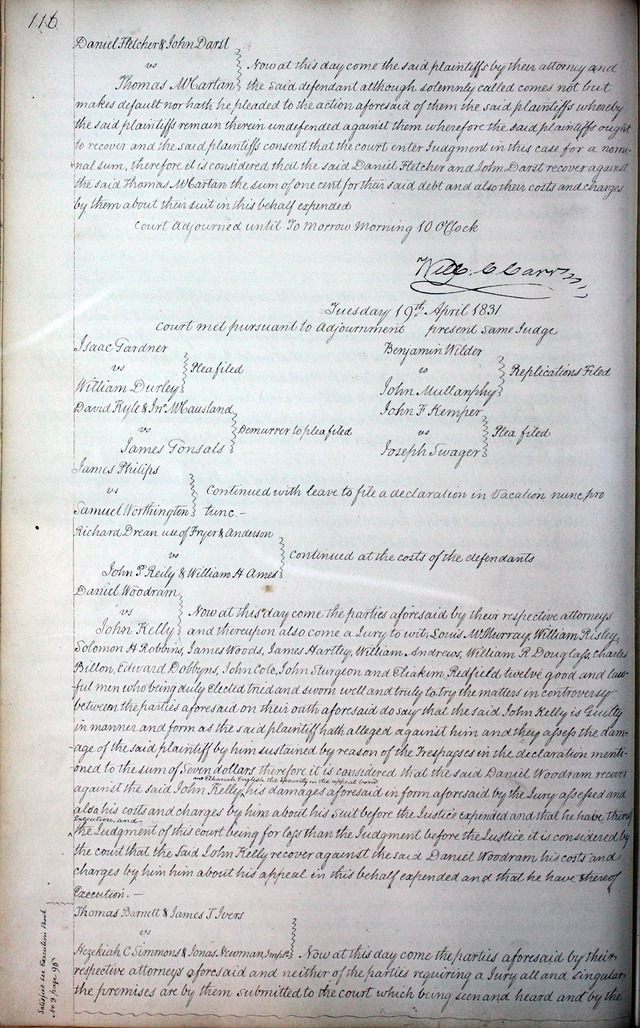 116.
Daniel Fletcher & John Darst
vs
Thomas McCartan
Now at this day come the said plaintiffs by their attorney and
the said defendant although solemnly called comes not but
makes default nor hath he pleaded to the action aforesaid of them the said plaintiffs whereby
the said plaintiffs remain therein undefended against them wherefore the said plaintiffs ought
to recover and the said plaintiffs consent that the court enter Judgment in this case for a nomi-
nal sum, therefore it is considered that the said Daniel Fletcher and John Darst recover against
the said Thomas McCartan the sum of one cent for their said debt and also their costs and charges
by them about their suit in this behalf expended
Court Adjourned until To Morrow Morning 10 O'Clock
Will. C Carr
Tuesday 19th April 1831
Court met pursuant to adjournment present same Judge
Isaac Gardner
vs
William Durley
Plea filed
Benjamin Wilder
vs
John Mullanphy
Replications Filed
David Kyle & Jno. McCausland
vs
James Tonsals
Demurrer to plea filed
John F Kemper
vs
Joseph Swager
Plea filed
James Philips
vs
Samuel Worthington
Continued with leave to file a declaration in Vacation nunc pro
tunc.-
Richard Drean use of Fryer & Anderson
vs
John P Reily & William H Ames
Continued at the costs of the defendants
Daniel Woodram
vs
John Kelly
Now at this day come the parties aforesaid by their respective attorneys
and thereupon also come a Jury to wit, Louis McMurray, William Risley,
Solomon H Robbins, James Woods, James Hartley, William Andrews, William R Douglass, Charles
Billon, Edward Dobbyns, John Cole, John Sturgion and Eliakim Redfield twelve good and law-
ful men who being duly Elected tried and sworn well and truly to try the matters in controversy
between the parties aforesaid on their oath aforesaid do say that the said John Kelly is Guilty
in manner and form as the said plaintiff hath alleged against him and they assess the dam-
age of the said plaintiff by him sustained by reason of the Trespasses in the declaration menti-
oned to the sum of Seven dollars therefore it is considered that the said Daniel Woodram recover
and Elkanah English the security in the appeal bond
against the said John Kelly, his damages aforesaid in form aforesaid by the Jury assessed and
also his costs and charges by him about his Suit before the Justice expended and that he have thereof
Execution. and
the Judgment of this court being for less than the Judgment before the Justice it is considered by
the court that the said John Kelly recover against the said Daniel Woodram his costs and
charges by him him about his appeal in this behalf expended and that he have thereof
Execution.-
Thomas Barnett & James T Ivers
vs
Hezekiah C Simmons & Jonas Newman Impd
Now at this day come the parties aforesaid by their
respective attorneys aforesaid and neither of the parties requiring a Jury all and singular
the premises are by them submitted to the court which being seen and heard and by the
Satisfied see Execution Book
No 3 page 95